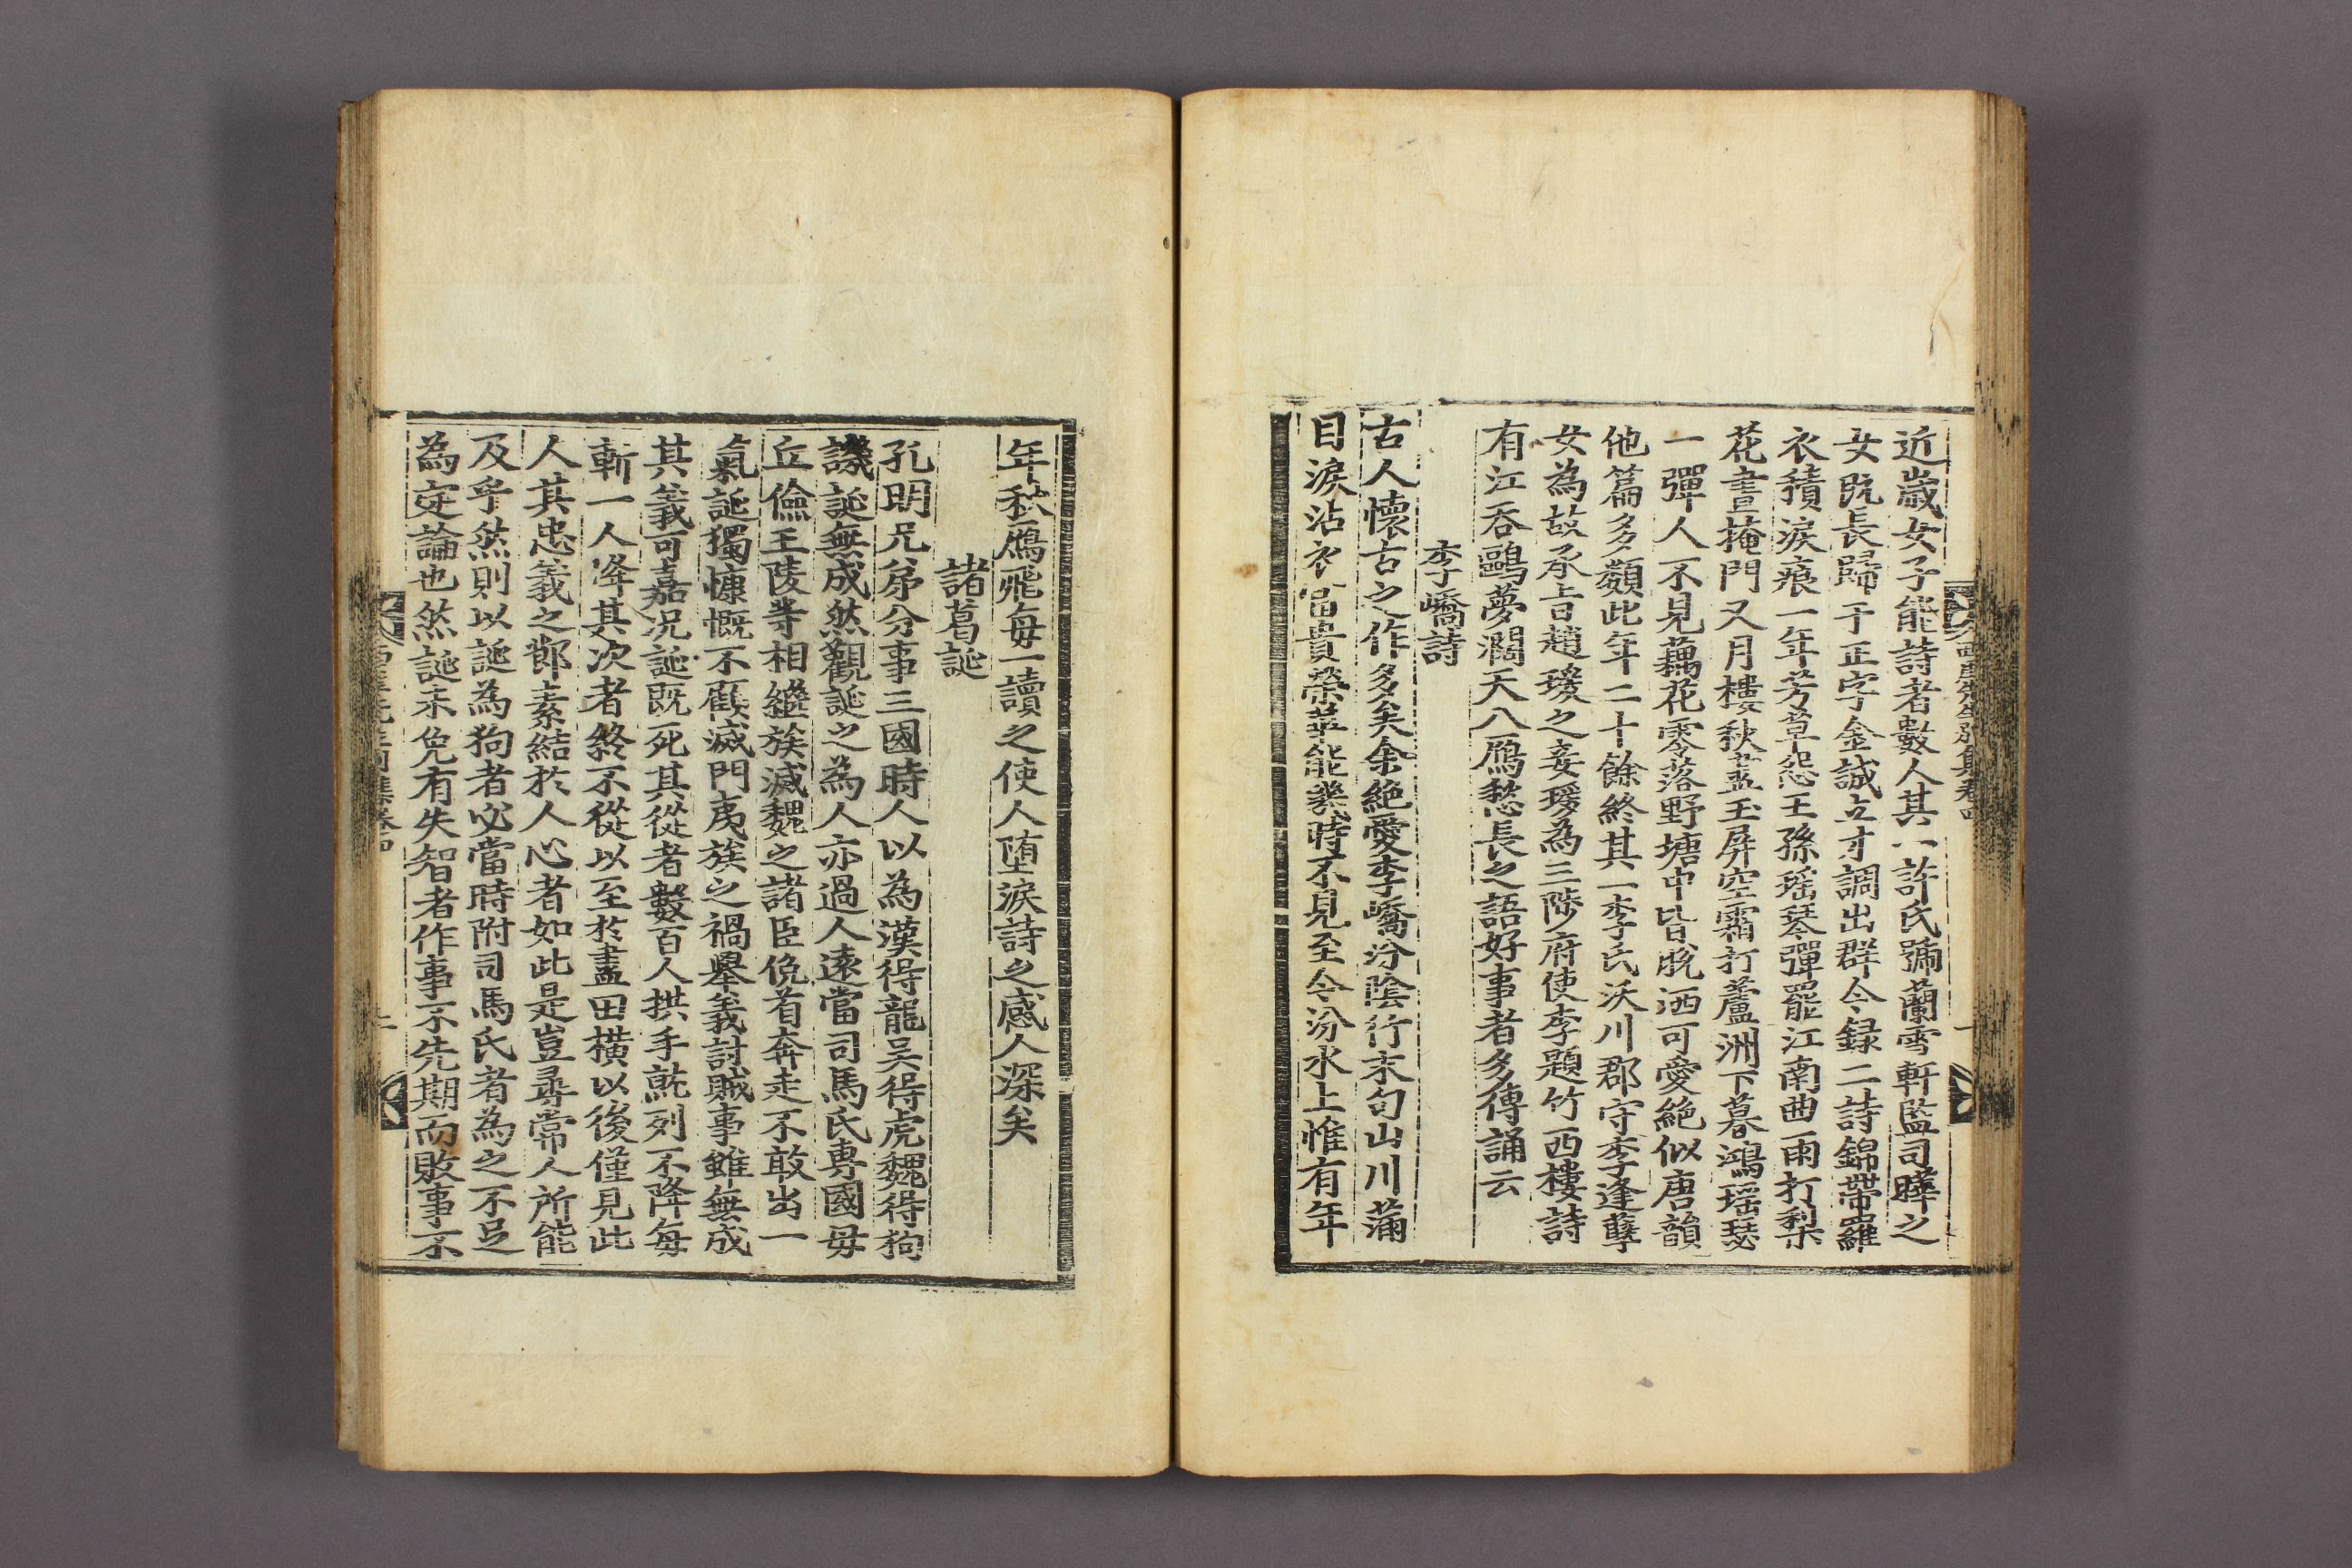 近歲女子能詩者數人其一許氏號蘭雪軒監司曄之
女旣長歸于正字金誠立才調出群今録二詩錦帶羅
衣積淚痕一年芳草怨王孫瑤琴彈罷江南曲雨打梨
花晝掩門又月樓秋盡玉屏空霜打蘆洲下暮鴻瑤瑟
一彈人不見藕花零落野塘中皆脫洒可愛絶似唐韻
他篇多類此年二十餘終其一李氏沃川郡守李逢孽
女為故承旨趙瑗之妾瑗為三陟府使李題竹西樓詩
有江吞鷗夢濶天入鴈愁長之語好事者多傳誦云
李嶠詩
古人懷古之作多矣余絶愛李嶠汾陰行末句山川滿
目淚沾衣冨貴榮華能幾時不見至今汾水上惟有年
西厓先生別集卷四
年秋鴈飛每一讀之使人墮淚詩之感人深矣
諸葛誕
孔明兄弟分事三國時人以為漢得龍吳得虎魏得狗
譏誕無成然觀誕之為人亦過人遠當司馬氏專國毋
丘儉王陵等相繼族滅魏之諸臣俛首奔走不敢出一
氣誕獨慷慨不顧滅門夷族之禍舉義討賊事雖無成
其義可嘉况誕既死其從者數百人拱手就列不降每
斬一人降其次者終不從以至於盡田橫以後僅見此
人其忠義之節素結於人心者如此是豈尋常人所能
及乎然則以誕為狗者必當時附司馬氏者為之不足
為定論也然誕未免有失智者作事不先期而敗事不
西厓先生別集卷四